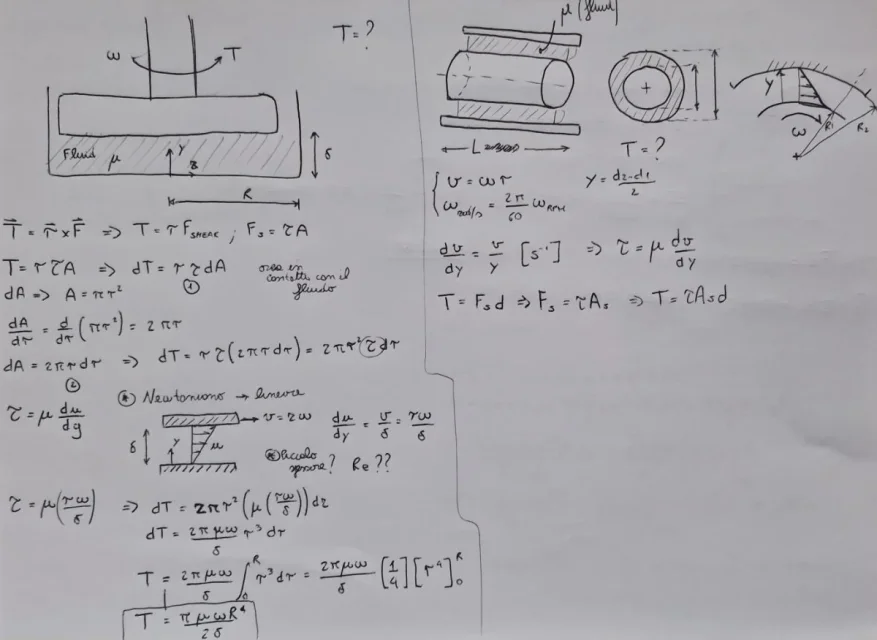 T = ?
ω T
Fluid μ
y
r
δ
R
T⃗ = r⃗ x F⃗ => T = r F_SHEAR ; F_s = τA
T = r τ A => dT = r τ dA
①
area in contatto con il fluido
dA => A = πr²
dA/dr = d/dr (πr²) = 2πr
dA = 2πr dr => dT = r τ (2πr dr) = 2πr² τ dr
②
τ = μ du/dy
(*) Newtoniano → lineare
v = rω
δ y u
du/dy = v/δ = rω/δ
(*) piccolo spessore? Re ??
τ = μ(rω/δ) => dT = 2πr² (μ(rω/δ)) dr
dT = 2πμω/δ r³ dr
T = 2πμω/δ ∫₀ᴿ r³ dr = 2πμω/δ [1/4] [r⁴]₀ᴿ
T = πμωR⁴/2δ
μ (fluid)
L
T = ?
y
ω R1 R2
v = ωr
y = d2-d1/2
ω_rad/s = 2π/60 ω_RPM
dv/dy = v/y [s⁻¹] => τ = μ dv/dy
T = F_s d => F_s = τA_s => T = τA_s d